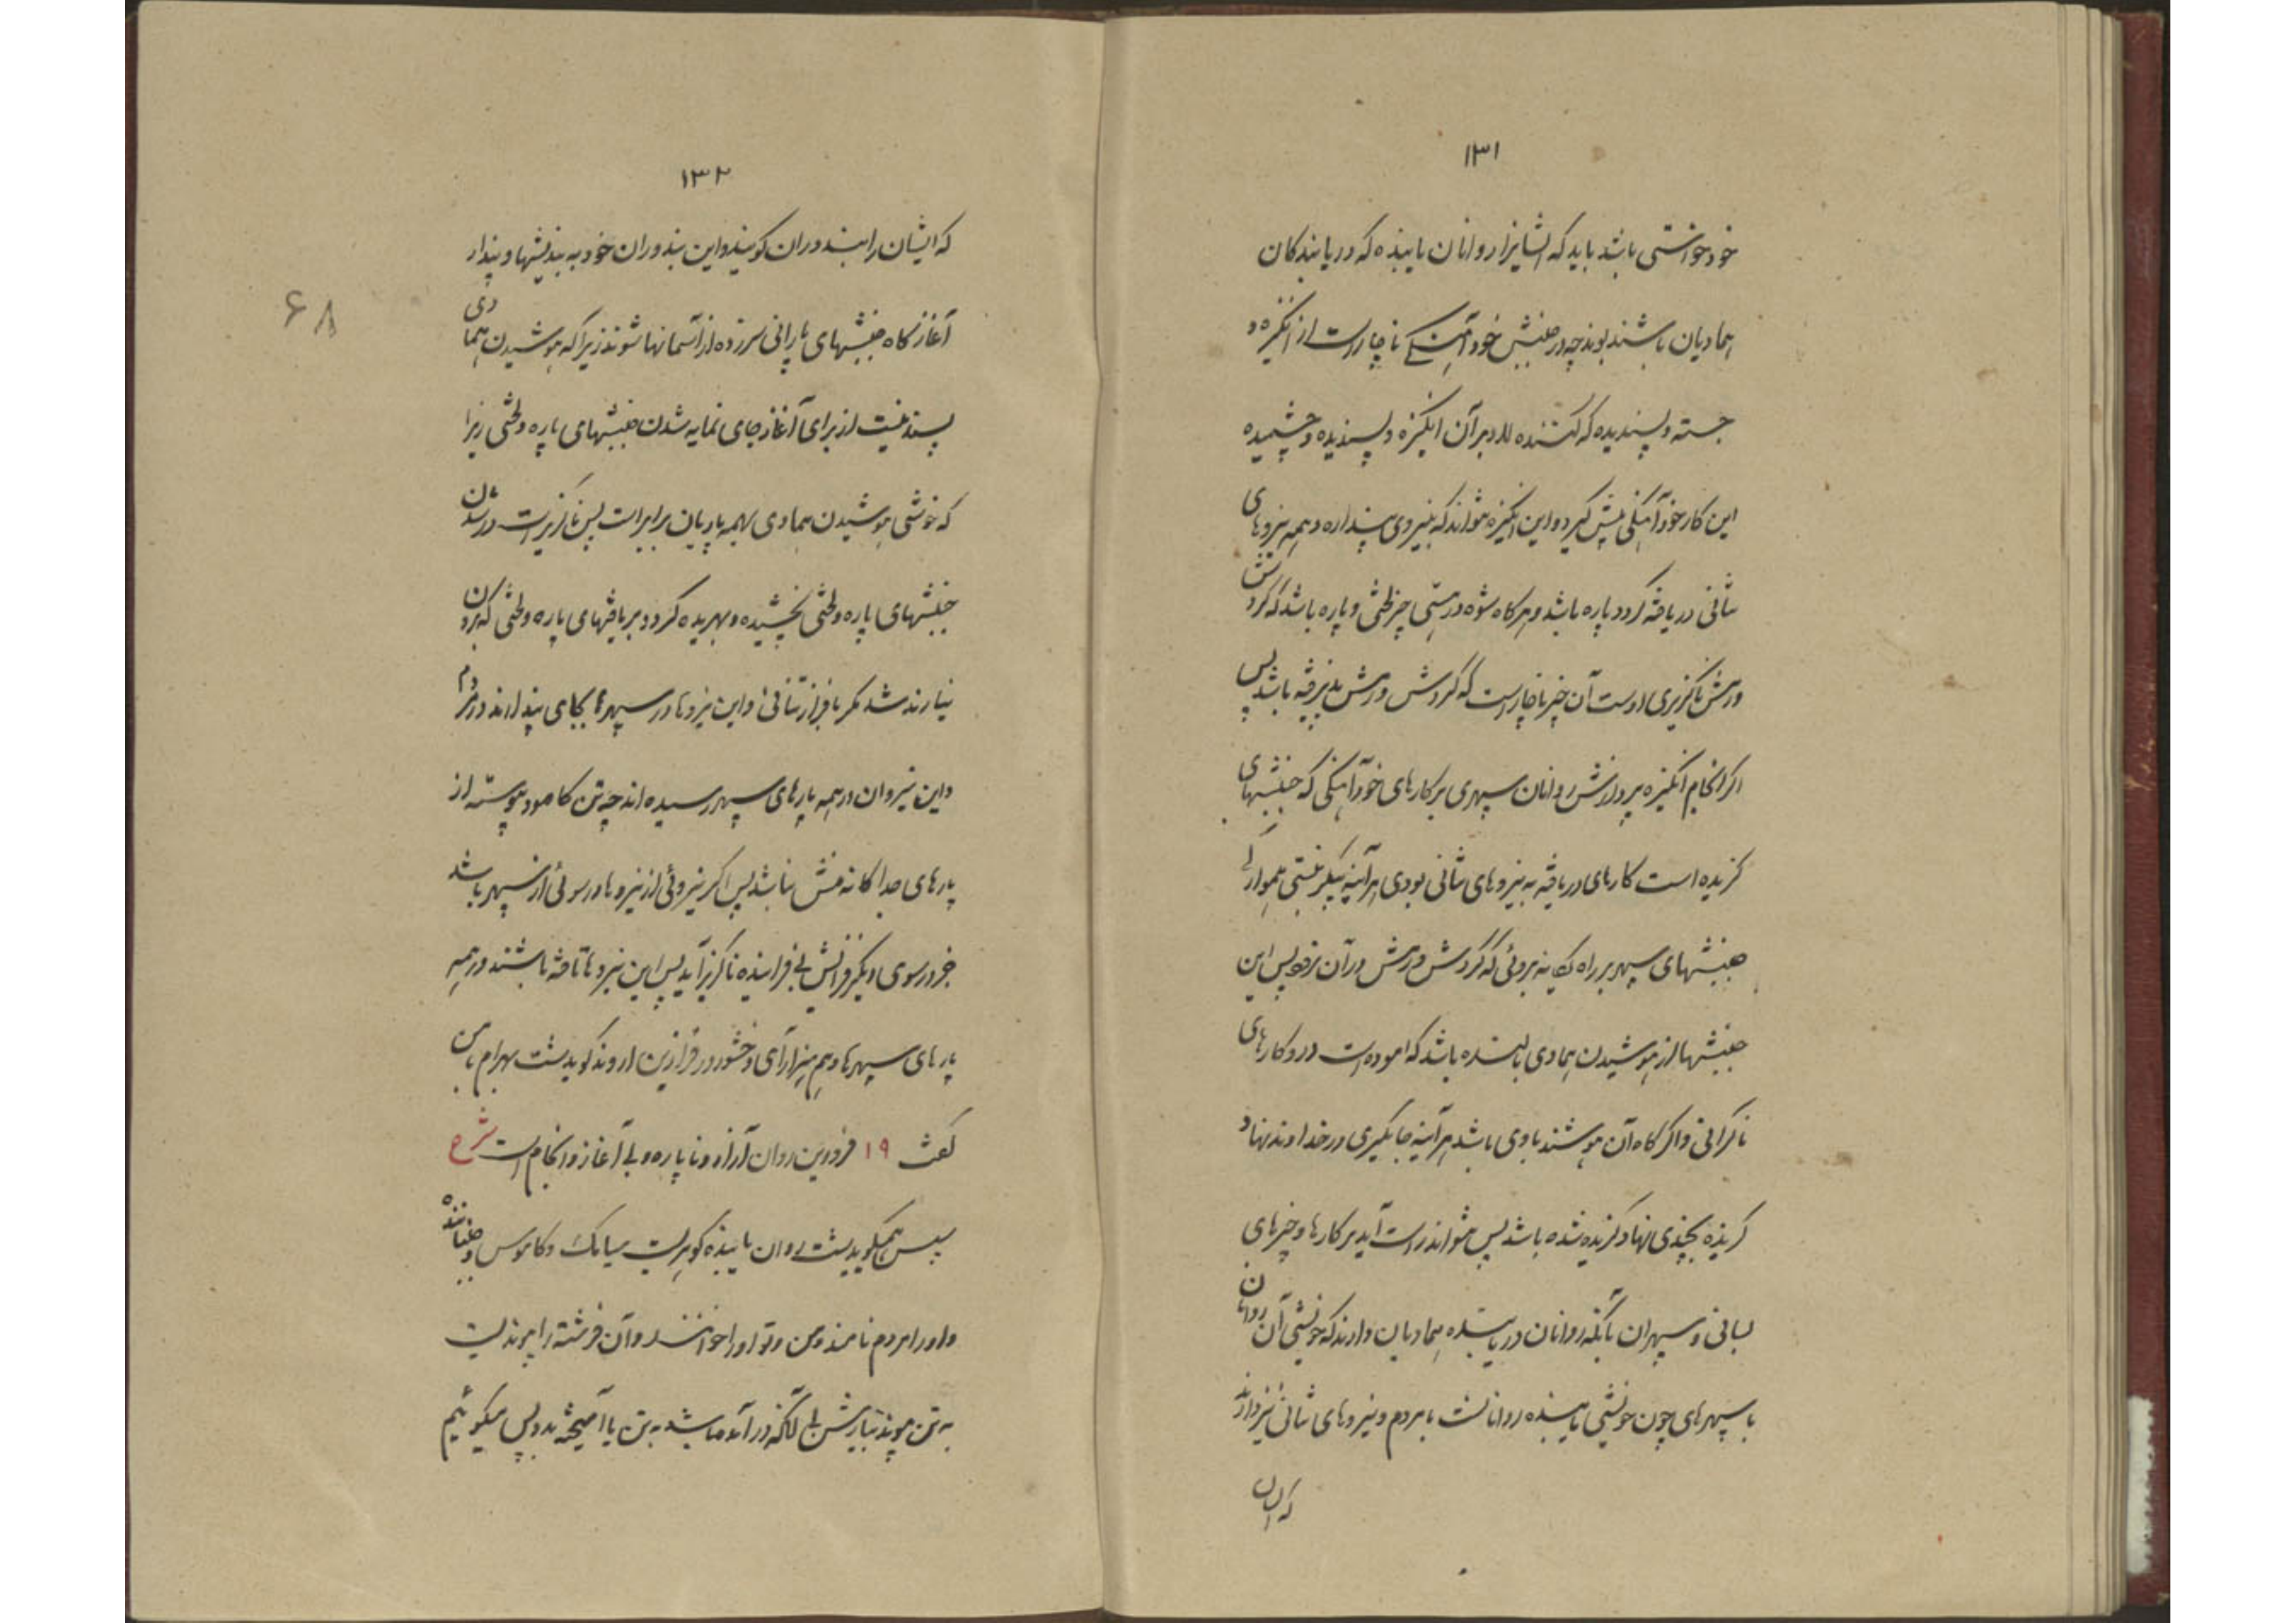 ۱۳۱
خود خواستی باشد باید که ایشانرا روانان یابنده که دریابندکان
همادیان باشند بوند چه در جنبش خود آهنگی ناچار است از انگیزه
جسته و پسندیده که کننده را بر آن انگیزه و پسندیده و چشمیده
این کار خودآهنگی پیش گیرد و این انگیزه نتواند که بنیروی پنداره و همه نیروهای
تنانی دریافته گردد پاره باشد و هرگاه شوه در هستی چیز لختی و پاره باشد که گردش
ورمش ناگزیری اوست آن چیز ناچار است که گردش ورمش پذیرفته باشد پس
اگر انجام انگیزه بر ورزش روانان سپهری بر کارهای خودآهنگی که جنبشهای
گزیده است کارهای دریافته به نیروهای تنانی بودی هر آینه پیکر نبستی همواری
جنبشهای سپهر بر راه یگانه بروئی که گردش ورمش در آن نرود پس این
جنبشها از هوشیدن همادی بایسته باشد که آموده است در و کارهای
ناکرانی و اگر گاه آن هوشند بادی باشد هر آینه جایگیری در خداوند نهاد و
گزیده بچندی نهاد گزیده شده باشد پس نتواند راست آید بر کارها و چیزهای
بسانی و سپهران با آنکه روانان دریابنده همادیان دارند که خویشی آن روانان
با سپهرهای چون خویشی یابنده روانانست با مردم و نیروهای تنانی نیز دارند
که ایشان
۱۳۲
که ایشان را بندوران گویند و این بندوران خود به بندیشها و پندار
آغازگاه جنبشهای پارانی سرزده از آسمانها شوند زیرا که هوشیدن همادی
پسند نیست از برای آغاز جای نمایه شدن جنبشهای پاره و لختی زیرا
که خویشی هوشیدن همادی بهمه پاریان برابر است پس ناگزیر است در شدن
جنبشهای پاره و لختی بخشیده و بهریده گردد و بر یافتهای پاره و لختی که برون
نیارند شد مگر بافراز تنانی و این نیروها در سپهرها بجای پندارند در مردم
و این نیروان در همه پارهای سپهر رسیده اند چه تن کامود پیوسته از
پارهای جداگانه منش نباشد پس اگر نیروئی از نیروها در سوئی از سپهر باشد
جز در سوی دیگر فزایش بی فزاینده ناگزیر آید پس این نیروها تافته باشند در همه
پارهای سپهرها و هم هیزار آرای وخشور در فرازین اروند گوید شت بهرام با من
گفت ۱۹ فرودین روان آزاد و ناپاره و بی آغاز و انجام است شرح
سپس همیگوید شت روان یابنده گوهریست سیامک و کاموس و جنباننده
و او را مردم نامند و من و تو او را خوانند و آن فرشته را پیوندیست
به تن پیوند نیارش بی آنکه در آمده باشد به تن یا آمیخته بدو پس میگوئیم
۶۸